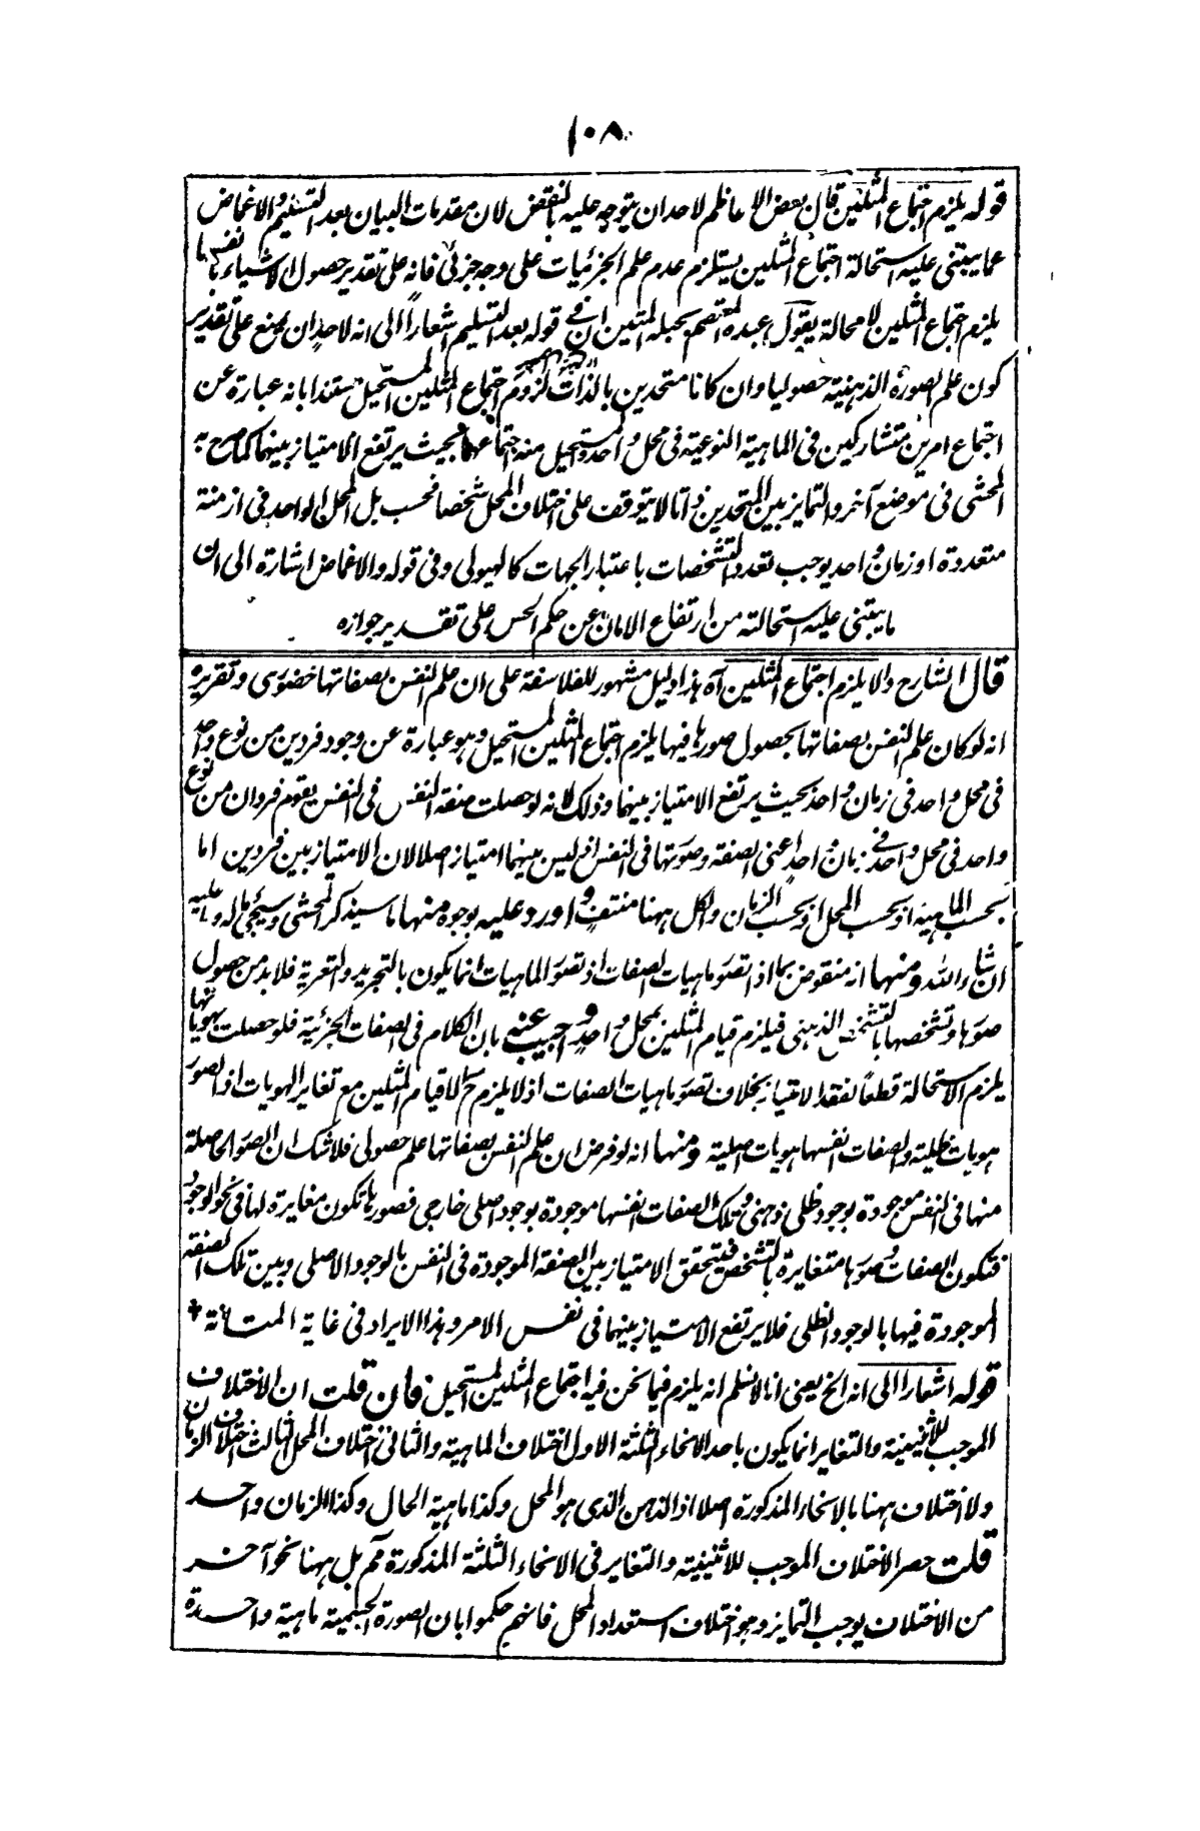 ١٠٨
قوله يلزم اجتماع المثلين قال بعض الاعاظم لاحد ان يتوجه عليه بالنقض لان مقدمات البيان بعد التسليم والاغماض
عما يبتنى عليه استحالة اجتماع المثلين يستلزم عدم علم الجزئيات على وجه جزئى فانه على تقدير حصول الاشياء بانفسها
يلزم اجتماع المثلين لا محالة يقول عبده المعتصم بحبله المتين ان فى قوله بعد التسليم اشعارا الى انه لاحد ان يمنع على تقدير
كون علم الصورة الذهنية حصوليا وان كانا متحدين بالذات لزوم اجتماع المثلين المستحيل مستندا بانه عبارة عن
اجتماع امرين متشاركين فى الماهية النوعية فى محل واحد والمستحيل منه اجتماعهما بحيث يرتفع الامتياز بينهما كما صرح به
المحشى فى موضع آخر والتمايز بين المتحدين ذاتا لا يتوقف على اختلاف المحل شخصا فحسب بل المحل الواحد فى ازمنة
متعددة او زمان واحد يوجب تعدد التشخصات باعتبار الجهات كالهيولى وفى قوله والاغماض اشارة الى ان
ما يبتنى عليه استحالته من ارتفاع الامان عن حكم الحس على تقدير جوازه
قال الشارح والا يلزم اجتماع المثلين آه هذا دليل مشهور للفلاسفة على ان علم النفس بصفاتها حضورى وتقريره
انه لو كان علم النفس بصفاتها بحصول صورها فيها يلزم اجتماع المثلين المستحيل وهو عبارة عن وجود فردين من نوع واحد
فى محل واحد فى زمان واحد بحيث يرتفع الامتياز بينهما وذلك لانه لو حصلت صفة النفس فى النفس يقوم فردان من نوع
واحد فى محل واحد فى زمان واحد اعنى الصفة وصورتها فى النفس اذ ليس بينهما امتياز اصلا لان الامتياز بين فردين اما
بحسب الماهية او بحسب المحل او بحسب الزمان والكل ههنا منتف و اورد عليه بوجوه منها ما سيذكر المحشى وسيجئ ماله وما عليه
ان شاء الله ومنها انه منقوض بما اذا تصور ماهيات الصفات اذ تصور الماهيات انما يكون بالتجريد والتعرية فلا بد من حصول
صورها وتشخصها بالتشخص الذهنى فيلزم قيام المثلين بمحل واحد و اجيب عنه بان الكلام فى الصفات الجزئية فلو حصلت بهوياتها
يلزم الاستحالة قطعا لفقد الامتياز بخلاف تصور ماهيات الصفات اذ لا يلزم ح الا قيام المثلين مع تغاير الهويات اذ الصور
هويات ظلية والصفات انفسها هويات اصلية ومنها انه لو فرض ان علم النفس بصفاتها علم حصولى فلا شك ان الصور الحاصلة
منها فى النفس موجودة بوجود ظلى ذهنى وتلك الصفات انفسها موجودة بوجود اصلى خارجى فصورها تكون مغايرة لها فى نحو الوجود
فتكون الصفات وصورها متغايرة بالتشخص فيتحقق الامتياز بين الصفة الموجودة فى النفس بالوجود الاصلى وبين تلك الصفة
الموجودة فيها بالوجود الظلى فلا يرتفع الامتياز بينهما فى نفس الامر وهذا الايراد فى غاية المتانة +
قوله اشعارا الى انه الخ يعنى انا لا نسلم انه يلزم فيما نحن فيه اجتماع المثلين المستحيل فان قلت ان الاختلاف
الموجب للاثنينية والتغاير انما يكون باحد الانحاء الثلثة الاول اختلاف الماهية والثانى اختلاف المحل والثالث اختلاف الزمان
ولا اختلاف ههنا بالانحاء المذكورة اصلا اذ الذهن الذى هو المحل وكذا ماهية الحال وكذا الزمان واحد
قلت حصر الاختلاف الموجب للاثنينية والتغاير فى الانحاء الثلثة المذكورة مم بل ههنا نحو آخر
من الاختلاف يوجب التمايز وهو اختلاف استعداد المحل فانهم حكموا بان الصورة الجسمية ماهية واحدة